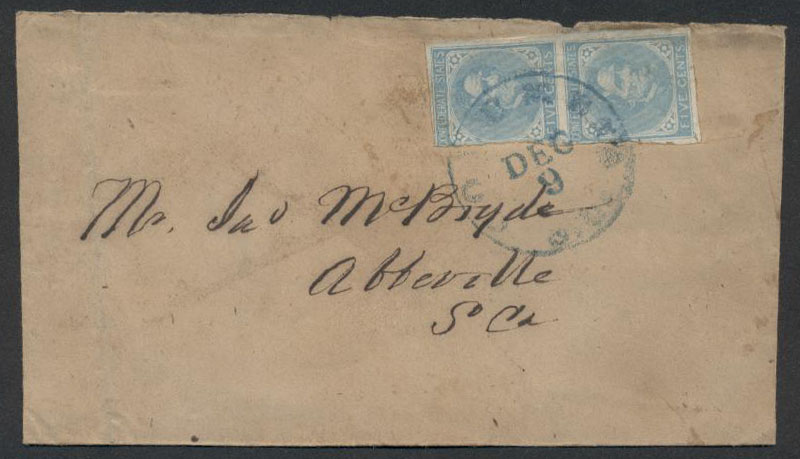 CONFEDERATE STATES
FIVE CENTS
FIVE CENTS
DEC
9
Mr. Jas McBryde
Abbeville
So Ca